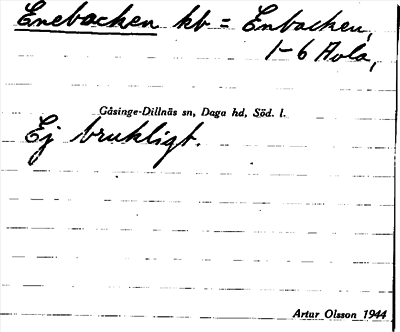 Enebacken kb = Enbacken,
1-6 Avla,
Gåsinge-Dillnäs sn, Daga hd, Söd. l.
Ej brukligt.
Artur Olsson 1944